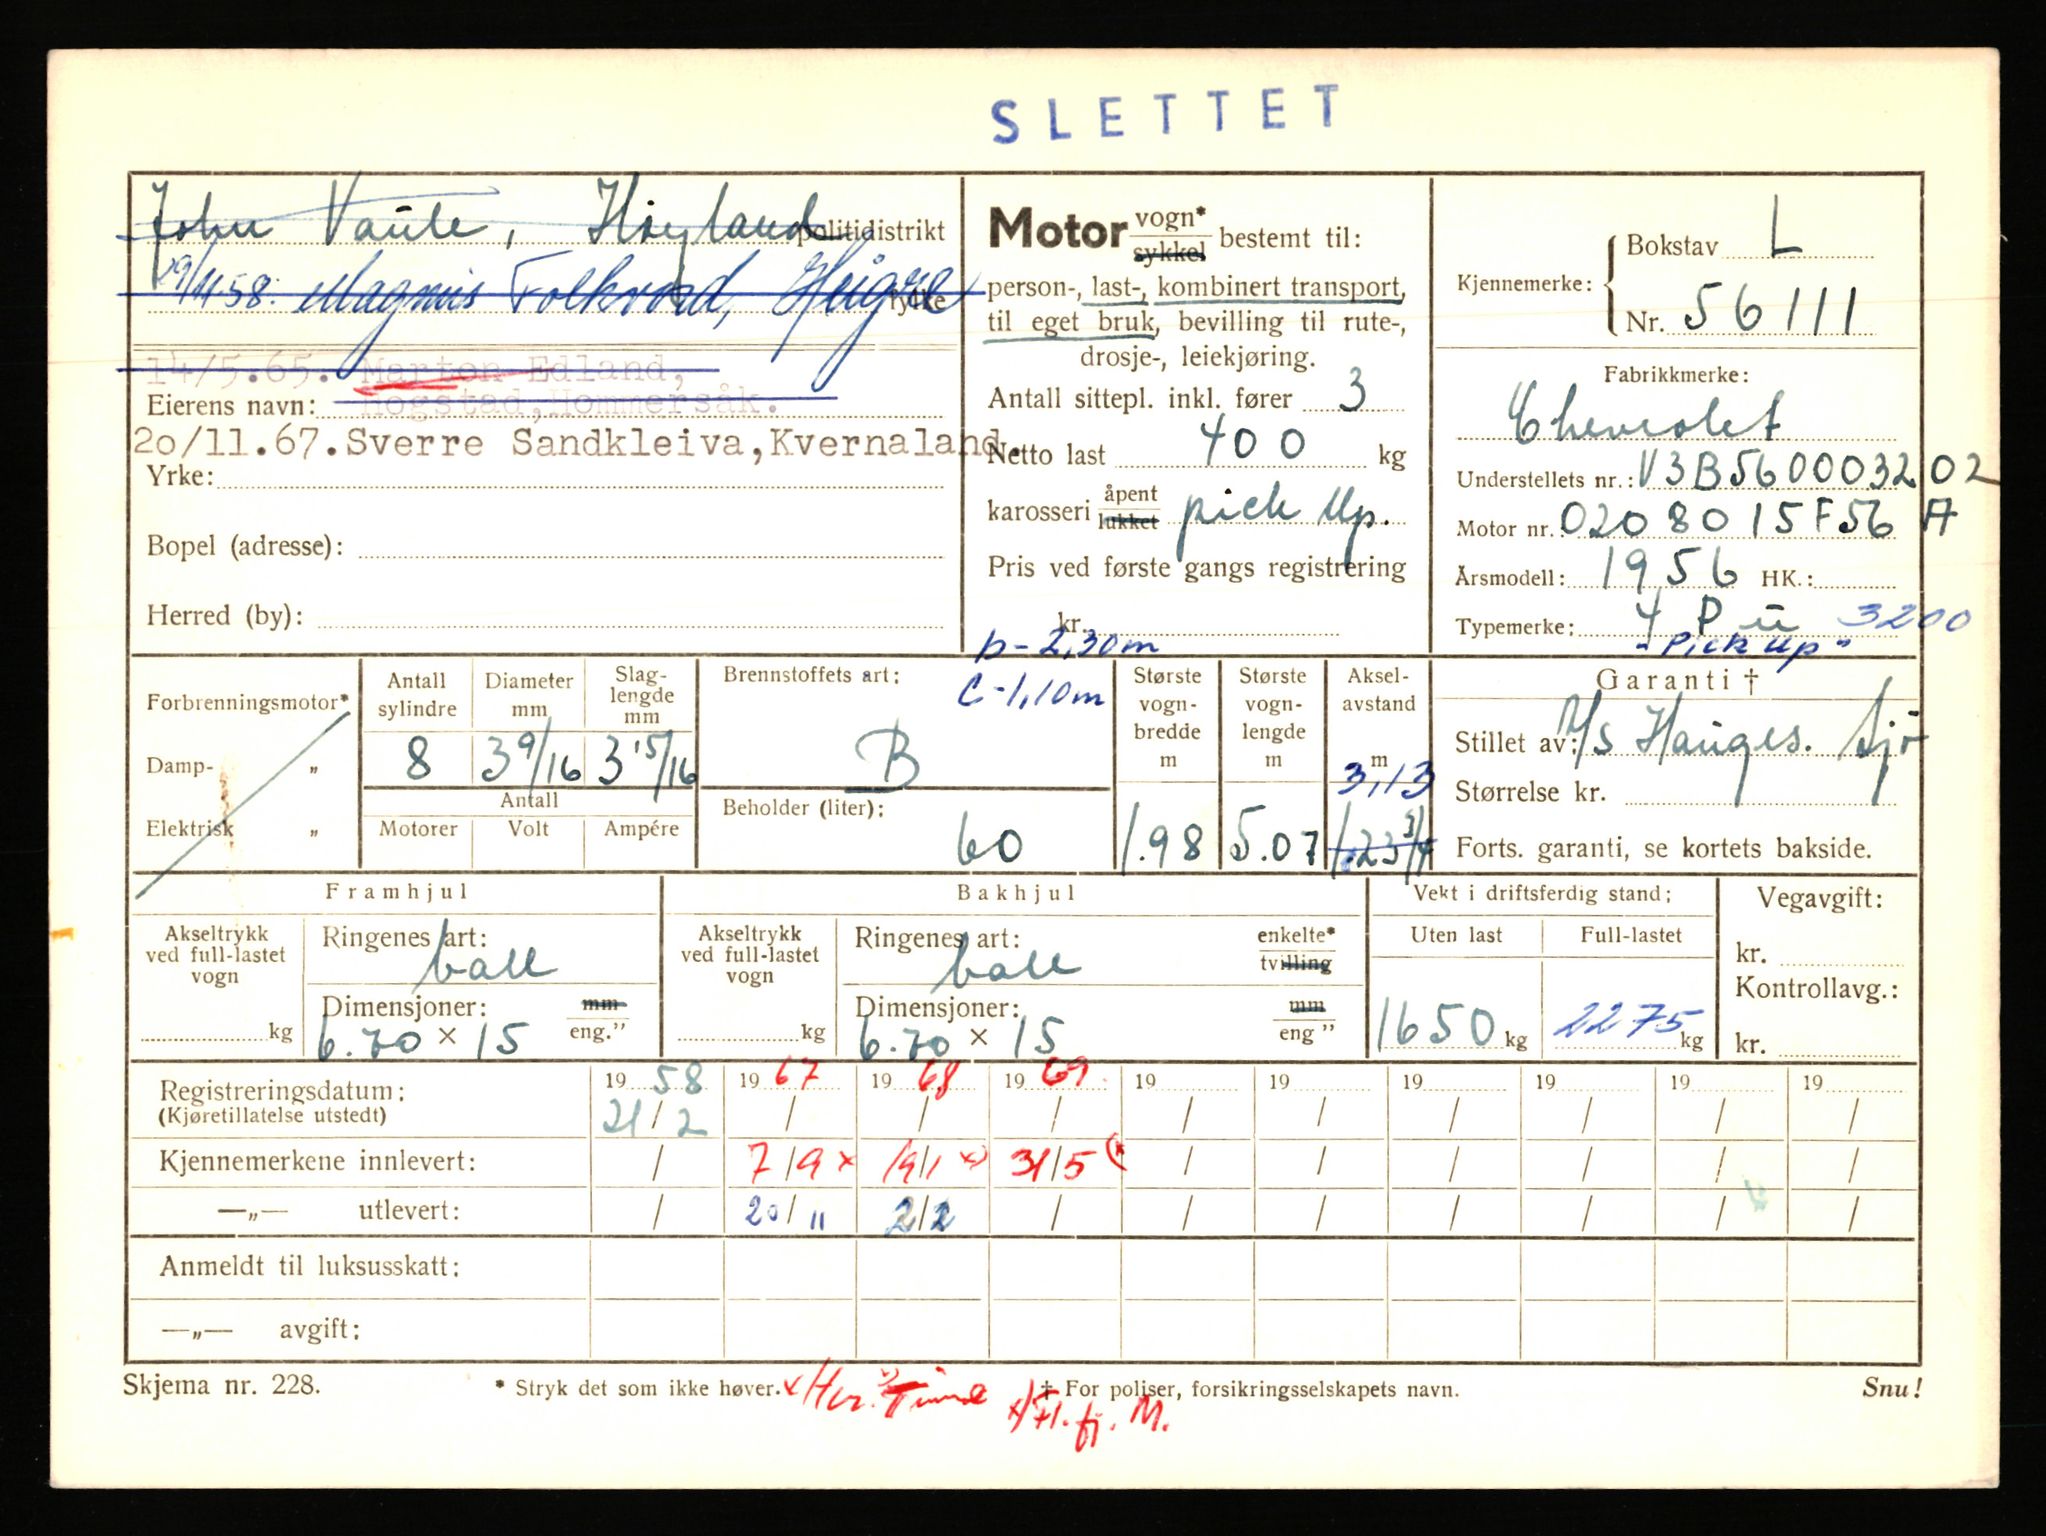 SLETTET
John Vaule, Høyland politidistrikt
29/11-58. Magnus Folkvord, Heigre fylke
14/5.65. Marton Edland,
Eierens navn: Hogstad, Hommersåk.
20/11.67. Sverre Sandkleiva, Kvernaland.
Yrke:
Bopel (adresse):
Herred (by):
Motor vogn* sykkel bestemt til:
person-, last-, kombinert transport,
til eget bruk, bevilling til rute-,
drosje-, leiekjøring.
Antall sittepl. inkl. fører 3
Netto last 400 kg
karosseri åpent lukket pick Up.
Pris ved første gangs registrering
kr.
b - 2,30 m
c - 1,10 m
Kjennemerke: Bokstav L
Nr. 56111
Fabrikkmerke:
Chevrolet
Understellets nr.: V3B56000320 2
Motor nr.: 0208015F56 A
Årsmodell: 1956 HK.:
Typemerke: 4 P u 3200
"Pick up"
Forbrenningsmotor*
Damp- „
Elektrisk „
Antall sylindre Diameter mm Slag-lengde mm
8 3 9/16 3 15/16
Antall
Motorer Volt Ampére
Brennstoffets art:
B
Beholder (liter):
60
Største vogn-bredde m
1.98
Største vogn-lengde m
5.07
Aksel-avstand m
3,13
1.23 3/4
Garanti †
Stillet av: A/S Hauges. Sjø
Størrelse kr.
Forts. garanti, se kortets bakside.
Framhjul
Akseltrykk ved full-lastet vogn
kg
Ringenes art:
ball
Dimensjoner: mm eng."
6.70 × 15
Bakhjul
Akseltrykk ved full-lastet vogn
kg
Ringenes art: enkelte* tvilling
ball
Dimensjoner: mm eng "
6.70 × 15
Vekt i driftsferdig stand:
Uten last Full-lastet
1650 kg 2275 kg
Vegavgift:
kr.
Kontrollavg.:
kr.
Registreringsdatum: 1958 1967 1968 1969 19 19 19 19 19 19
(Kjøretillatelse utstedt) 21/2 / / / / / / / / /
Kjennemerkene innlevert: / 7/9 x 19/1 x) 31/5 (* / / / / / /
—„— utlevert: / 20/11 2/2 / / / / / / /
Anmeldt til luksusskatt:
—„— avgift:
Skjema nr. 228. * Stryk det som ikke høver. † For poliser, forsikringsselskapets navn. Snu!
x) Fl. fj. M.